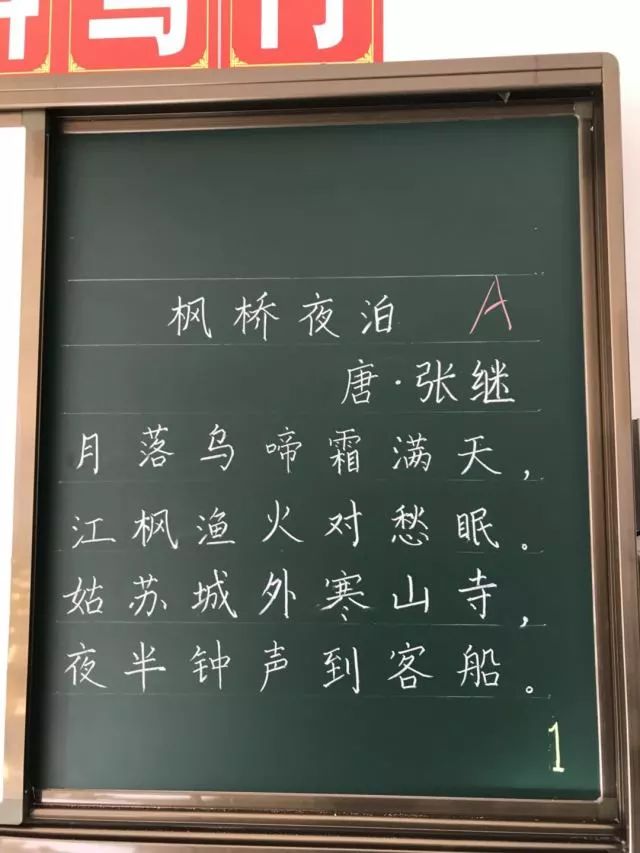 枫桥夜泊 A
唐·张继
月落乌啼霜满天，
江枫渔火对愁眠。
姑苏城外寒山寺，
夜半钟声到客船。
1